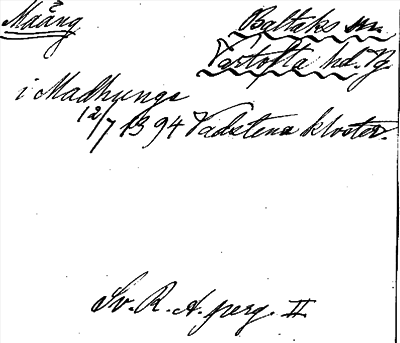 Maång
Baltaks sn.
Vartofta hd. Vg.
i Madhunge
12/7 1394 Vadstena kloster.
Sv. R. A. perg. II